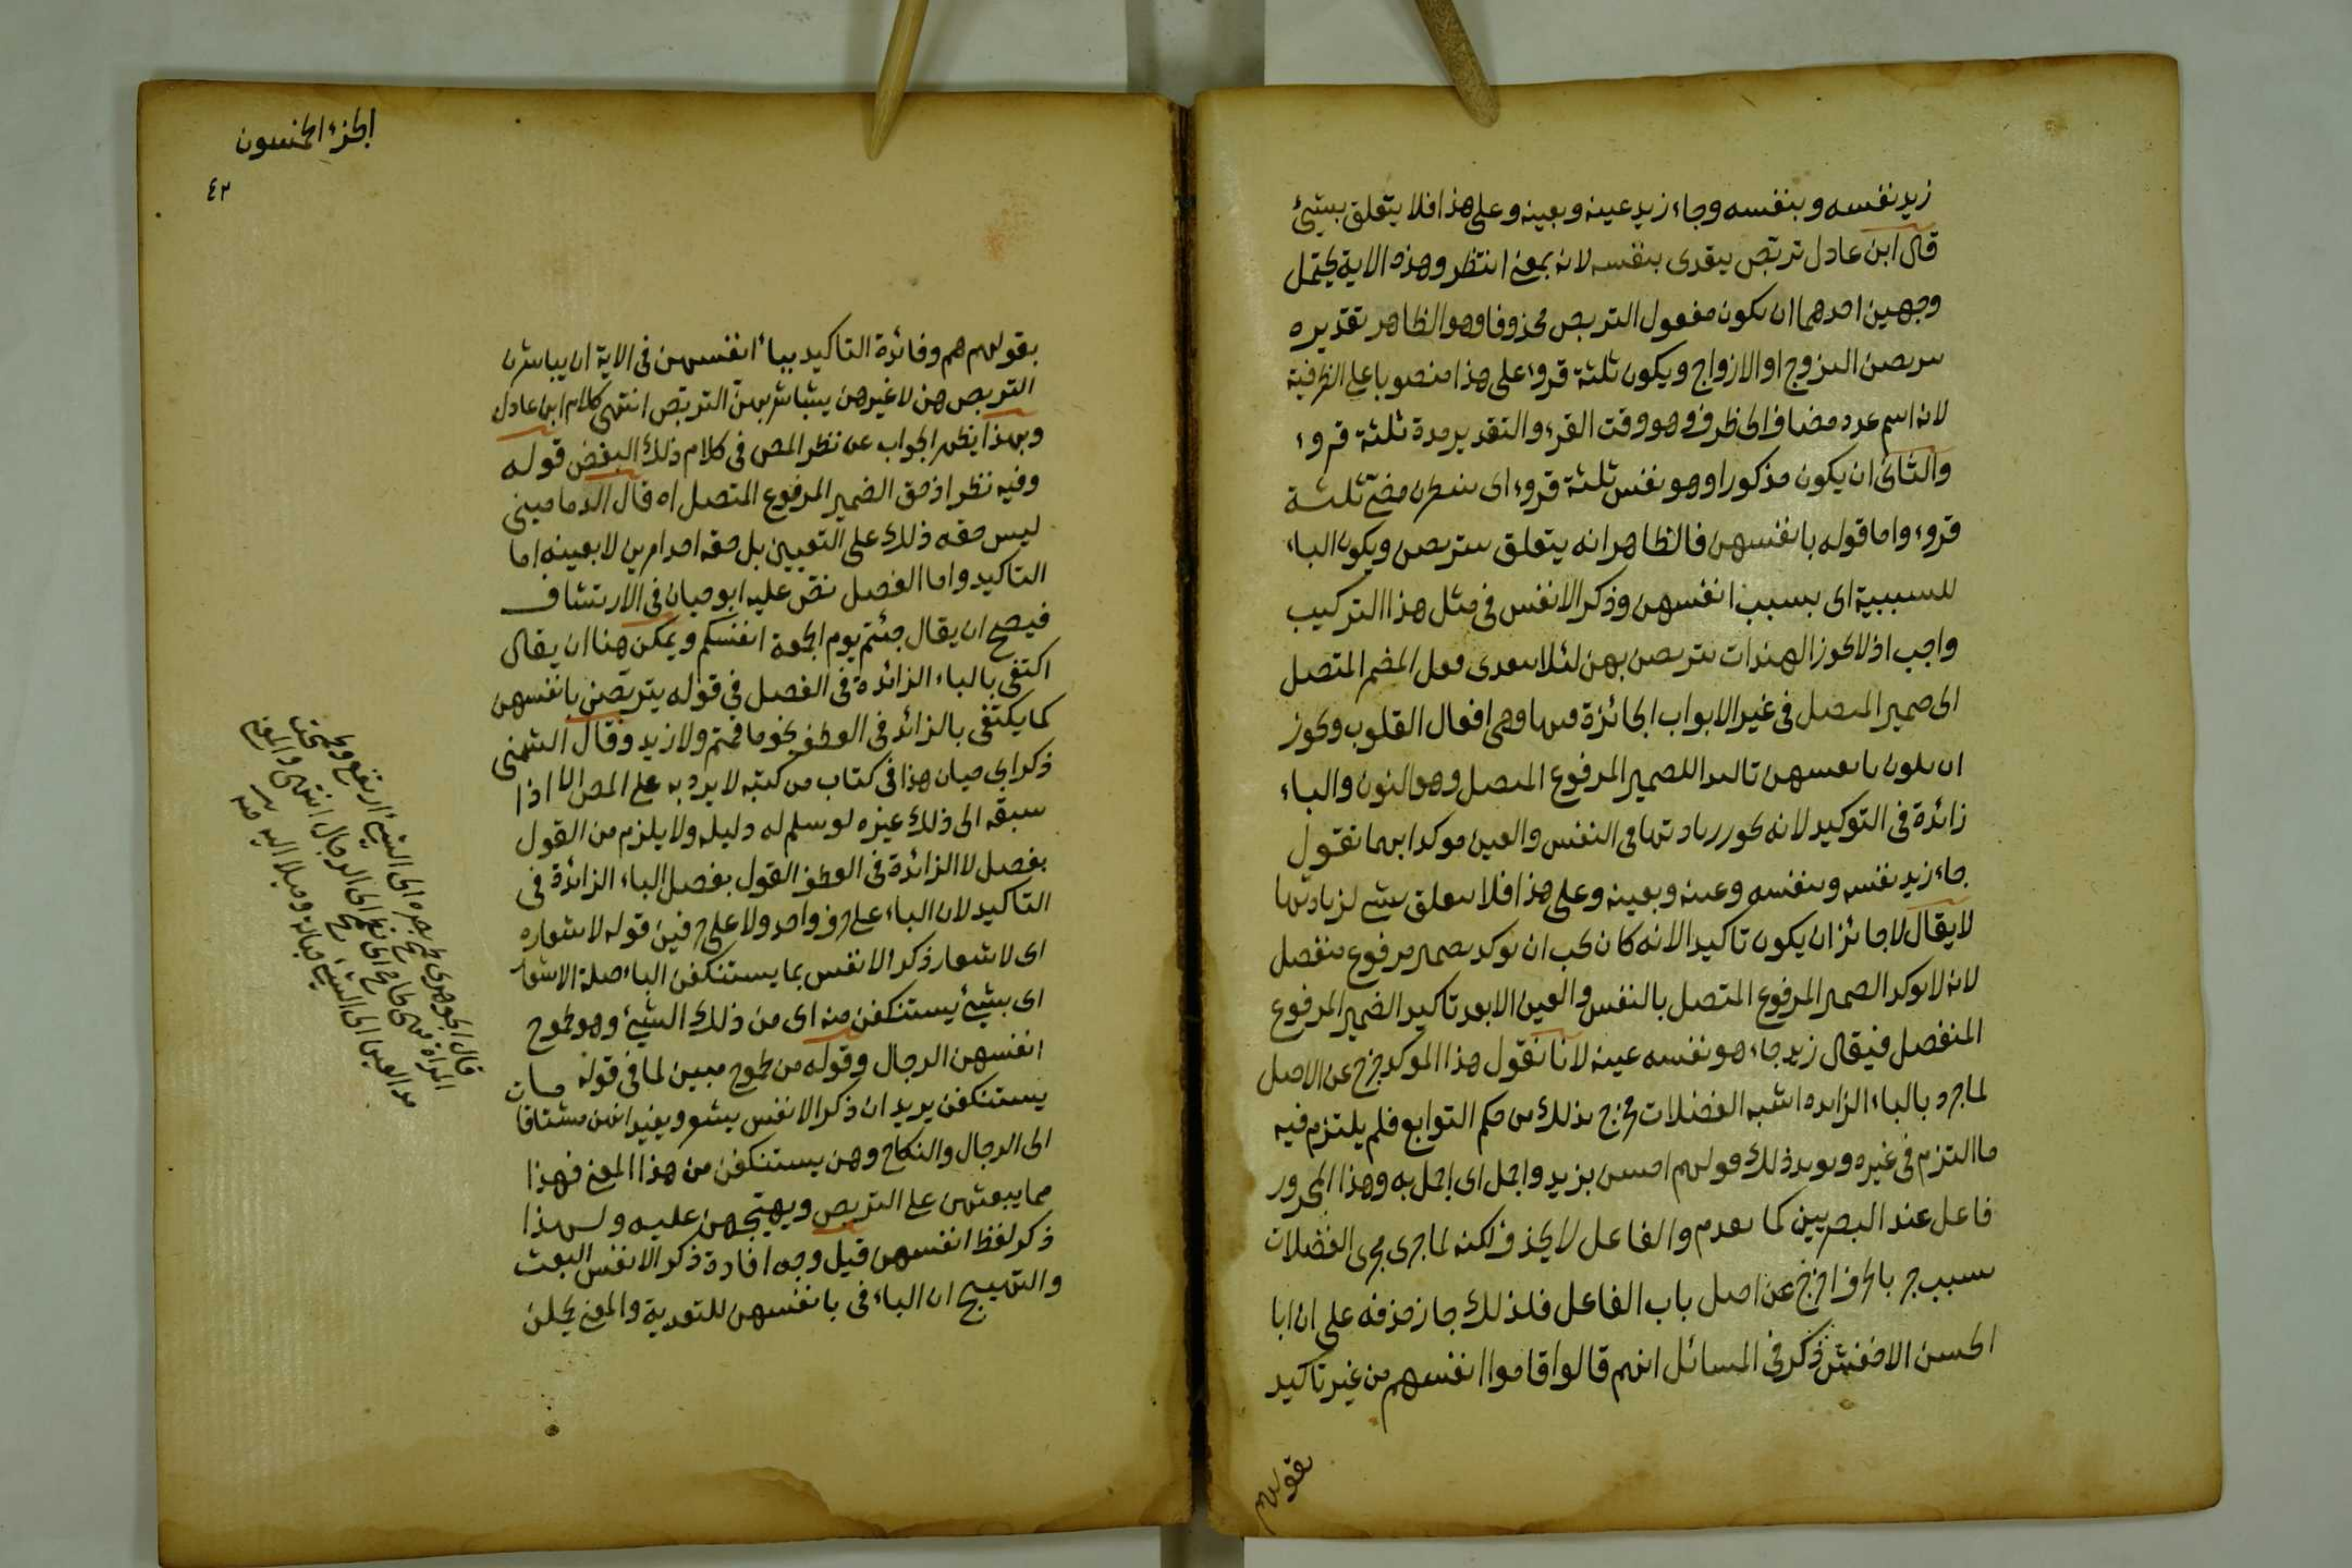 زيد نفسه وبنفسه وجاء زيد عينه وبعينه وعلى هذا فلا يتعلق بشئ
قال ابن عادل تربص يتعدى بنفسه لانه بمعنى انتظر وهذه الاية يحتمل
وجهين احدهما ان يكون مفعول التربص محذوفا وهو الظاهر تقديره
يتربصن التزوج او الازواج ويكون ثلثة قروء على هذا منصوبا على الظرفية
لانه اسم عدد مضاف الى ظرف وهو وقت القرء والتقدير مدة ثلثة قروء
والثانى ان يكون مذكورا وهو نفس ثلثة قروء اى ينتظرن مضى ثلثة
قروء واما قوله بانفسهن فالظاهر انه يتعلق بيتربصن ويكون الباء
للسببية اى بسبب انفسهن وذكر الانفس فى مثل هذا التركيب
واجب اذ لا يجوز الهندات يتربصن بهن لئلا يتعدى فعل المضمر المتصل
الى ضمير المتصل فى غير الابواب الجائزة فيها وهى افعال القلوب ويجوز
ان يكون بانفسهن تاكيدا للضمير المرفوع المتصل وهو النون والباء
زائدة فى التوكيد لانه يجوز زيادتها فى النفس والعين موكدا بهما تقول
جاء زيد نفسه وبنفسه وعينه وبعينه وعلى هذا فلا يتعلق بشئ لزيادتها
لا يقال لا جائز ان يكون تاكيدا لانه كان يجب ان يوكد بضمير مرفوع منفصل
لانه لا يوكد الضمير المرفوع المتصل بالنفس والعين الا بعد تاكيد الضمير المرفوع
المنفصل فيقال زيد جاء هو نفسه عينه لانا نقول هذا الموكد خرج عن الاصل
لما جر بالباء الزايدة اشبه الفضلات فخرج بذلك من حكم التوابع فلم يلتزم فيه
ما التزم فى غيره ويويد ذلك قولهم احسن بزيد واجمل اى اجمل به وهذا المجرور
فاعل عند البصريين كما تقدم والفاعل لا يحذف لكنه لما جرى مجرى الفضلات
بسبب جر بالحرف اخرج عن اصل باب الفاعل فلذلك جاز حذفه على ان ابا
الحسن الاخفش ذكر فى المسائل انهم قالوا قاموا انفسهم من غير تاكيد
بقولهم
الجزء الخمسون
٤٢
بقولهم هم وفائدة التاكيد بباء انفسهن فى الاية ان يباشرن
التربص هن لا غيرهن يباشرهن التربص انتهى كلام ابن عادل
وبهذا يظهر الجواب عن نظر المص فى كلام ذلك البعض قوله
وفيه نظر اذ حق الضمير المرفوع المتصل اه قال الدمامينى
ليس حقه ذلك على التعيين بل حقه احد امرين لا بعينه اما
التاكيد واما الفصل نص عليه ابو حيان فى الارتشاف
فيصح ان يقال جئتم يوم الجمعة انفسكم ويمكن هنا ان يقال
اكتفى بالباء الزائدة فى الفصل فى قوله يتربصن بانفسهن
كما يكتفى بالزائد فى العطف نحو ما قمتم ولا زيد وقال الشمنى
ذكر ابى حيان هذا فى كتاب من كتبه لا يرد به على المص الا اذا
سبقه الى ذلك غيره لو سلم له دليله ولا يلزم من القول
بفصل لا الزائدة فى العطف القول بفصل الباء الزائدة فى
التاكيد لان الباء على حرف واحد ولا على حرفين قوله لاشعاره
اى لاشعار ذكر الانفس بما يستنكفن الباء صلة الاشعار
اى بشئ يستنكفن منه اى من ذلك الشئ وهو طموح
انفسهن الرجال وقوله من طموح مبين لما فى قوله بما
يستنكفن يريد ان ذكر الانفس يشعر ويفيد انهن مشتاقات
الى الرجال والنكاح وهن يستنكفن من هذا المعنى فهذا
مما يبعثهن على التربص ويهيجهن عليه ولهذا
ذكر لفظ انفسهن قيل وجه افادة ذكر الانفس البعث
والتهييج ان الباء فى بانفسهن للتعدية والمعنى يحملن
قال الجوهرى طمح بصره الى الشئ ارتفع وطمحت
المراة فهى طامح اى تطمح الى الرجال انتهى